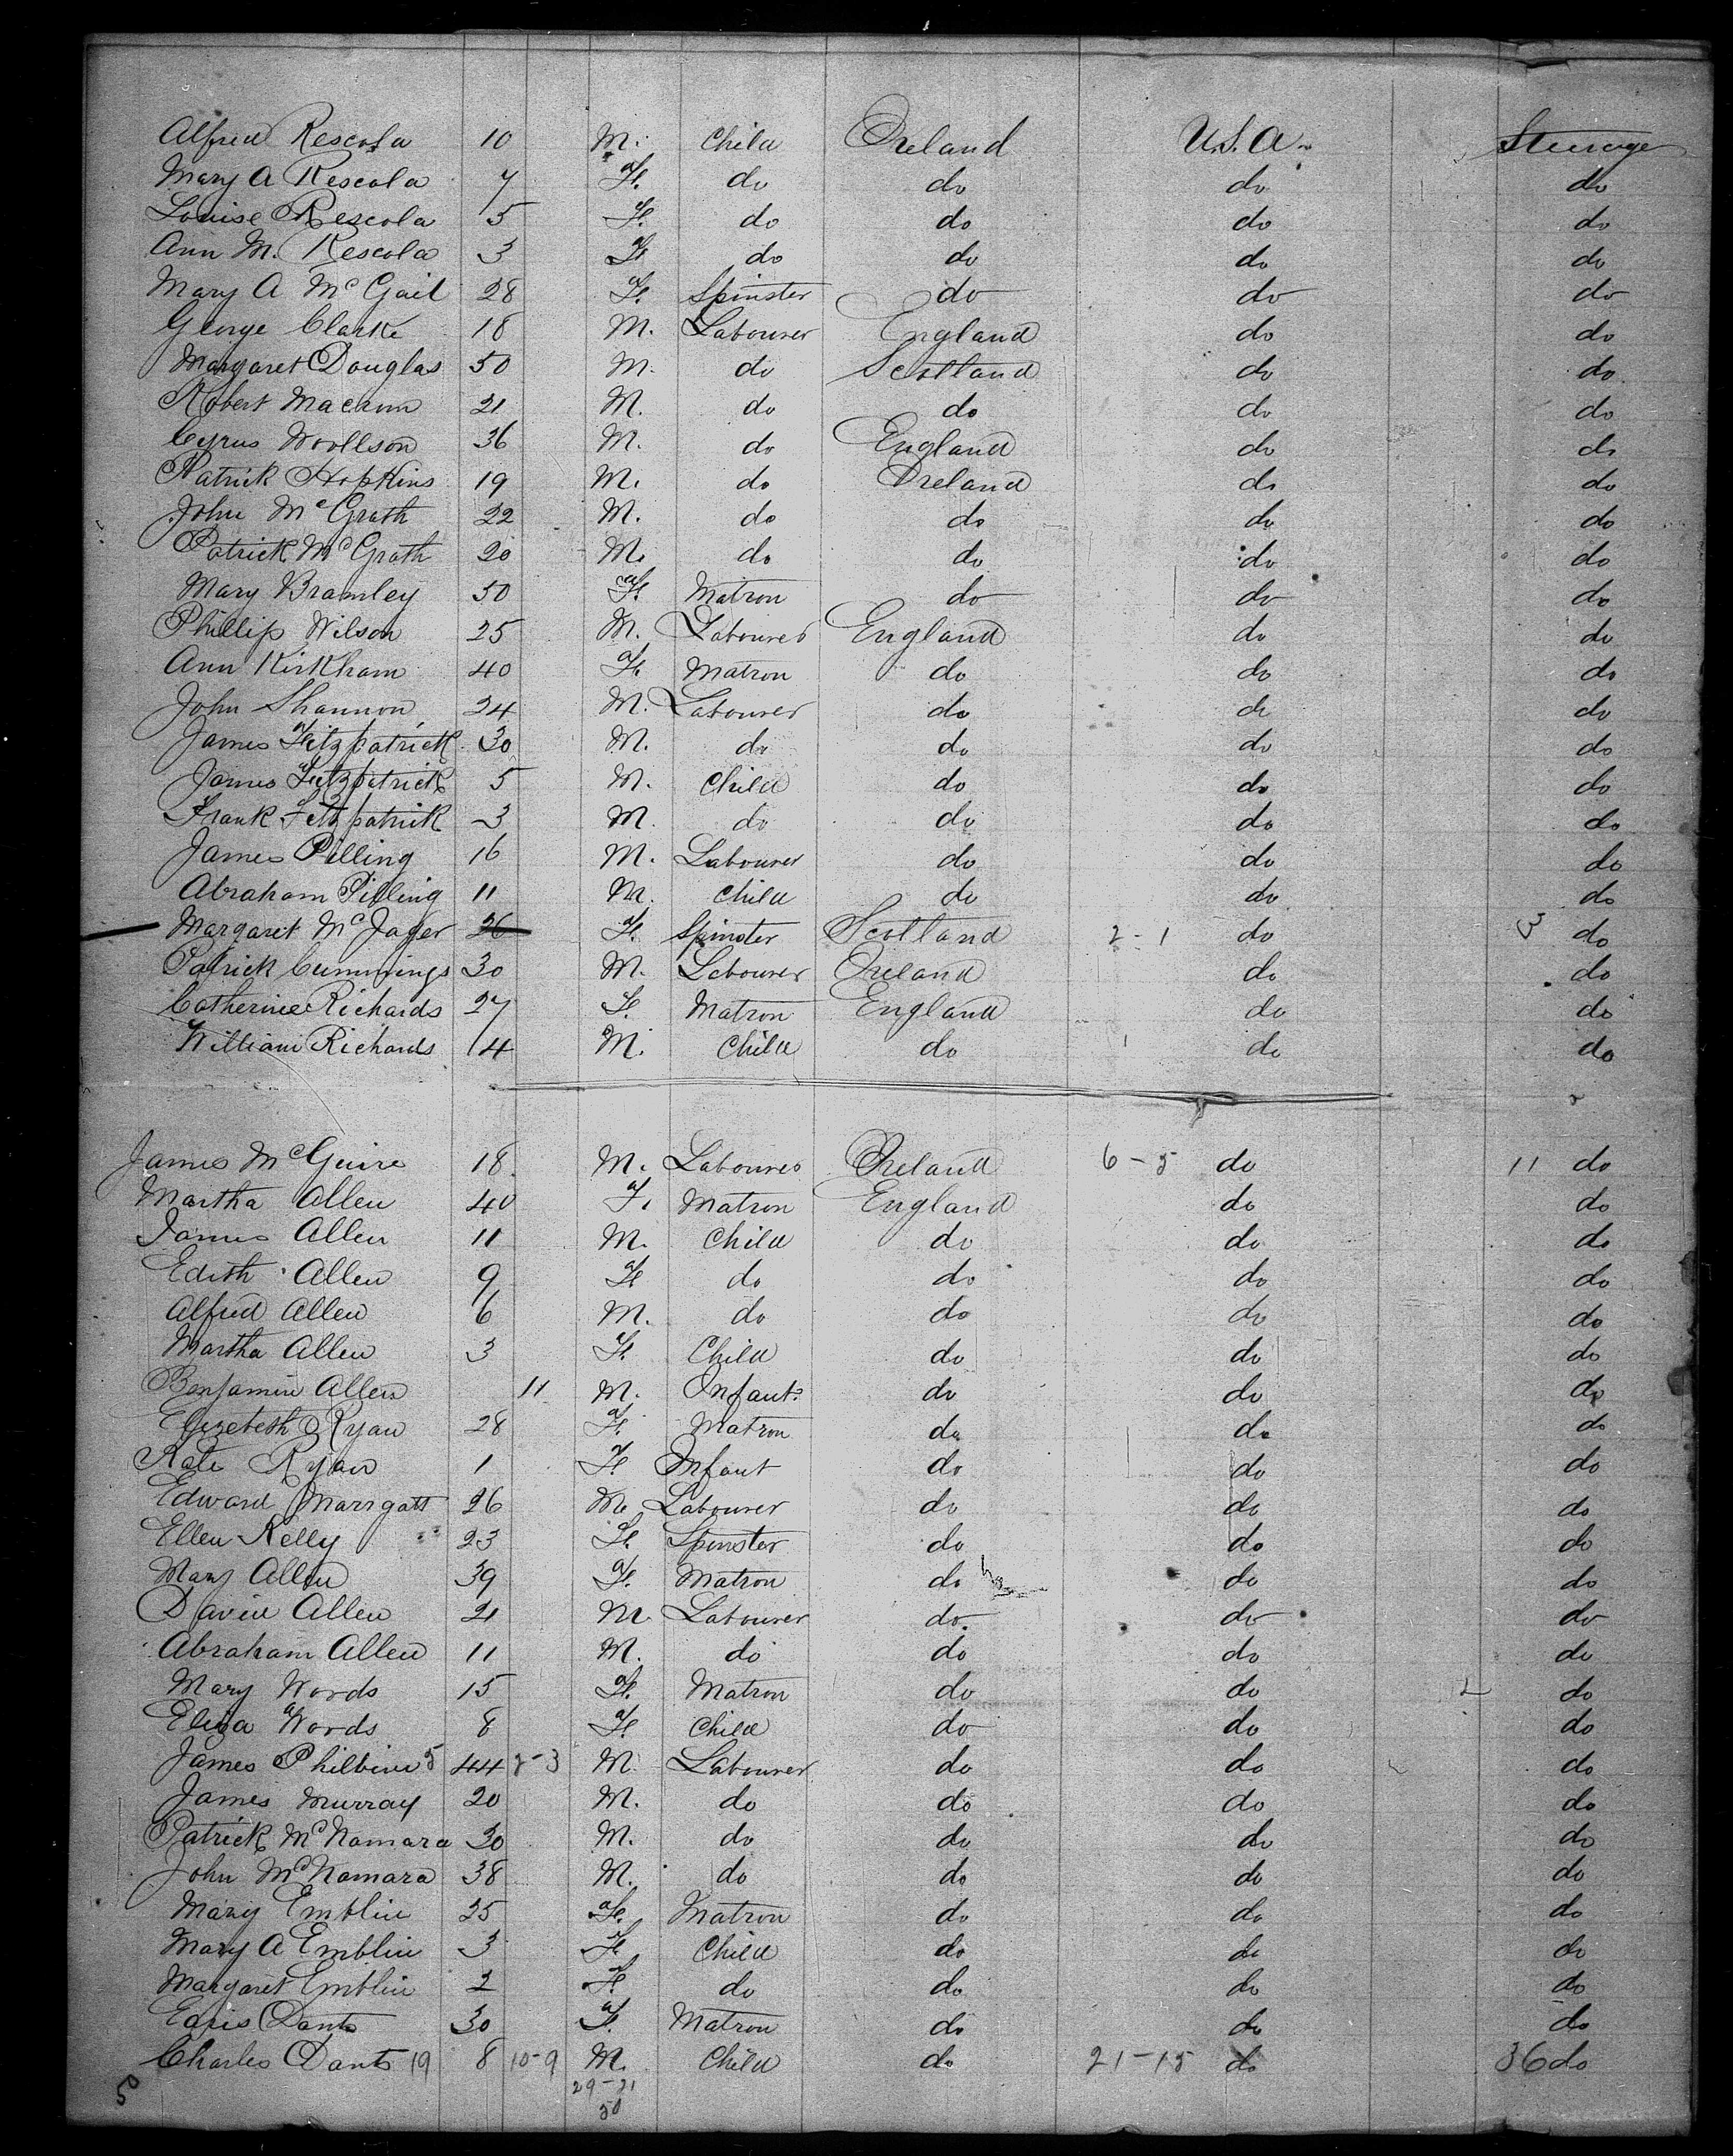 Alfred Rescola 10 M. Child Ireland U.S.A. Steerage
Mary A Rescola 7 F. do do do do
Louise Rescola 5 F. do do do do
Ann M. Rescola 3 F do do do do
Mary A McGail 28 F. Spinster do do do
George Clarke 18 M. Labourer England do do
Margaret Douglas 50 M. do Scotland do do
Robert Macrum 21 M. do do do do
Cyrus Woollson 36 M. do England do do
Patrick Hopkins 19 M. do Ireland do do
John McGrath 22 M. do do do do
Patrick McGrath 20 M. do do do do
Mary Bramley 50 F. Matron do do do
Phillip Wilson 25 M. Labourer England do do
Ann Kirkham 40 F. Matron do do do
John Shannon 24 M. Labourer do do do
James Fitzpatrick 30 M. do do do do
James Fitzpatrick 5 M. Child do do do
Frank Fitzpatrick 3 M. do do do do
James Pilling 16 M. Labourer do do do
Abraham Pilling 11 M. Child do do do
Margaret McJager 26 F. Spinster Scotland 2-1 do 3 do
Patrick Cummings 30 M. Labourer Ireland do do
Catherine Richards 27 F. Matron England do do
William Richards 4 M. Child do do do
James McGuire 18. M. Labourer Ireland 6-5 do 11 do
Martha Allen 40 F. Matron England do do
James Allen 11 M. Child do do do
Edith Allen 9 F do do do do
Alfred Allen 6 M. do do do do
Martha Allen 3 F. Child do do do
Benjamin Allen 11 M. Infant do do do
Elizebeth Ryan 28 F. Matron do do do
Kate Ryan 1 F Infant do do do
Edward Marrgatt 26 M. Labourer do do do
Ellen Kelly 23 F. Spinster do do do
Mary Allen 39 F. Matron do do do
David Allen 21 M. Labourer do do do
Abraham Allen 11 M. do do do do
Mary Words 15 F. Matron do do do
Eliza Words 8 F. Child do do do
James Philbin 5 44 2-3 M. Labourer do do do
James Murray 20 M. do do do do
Patrick McNamara 30 M. do do do do
John McNamara 38 M. do do do do
Mary Emblin 25 F. Matron do do do
Mary A Emblin 3 F. Child do do do
Margaret Emblin 2 F do do do do
Danto 30 F. Matron do do do
Charles Danto 19 8 10-9 M. Child do 21-15 do 36 do
29-21
5 50